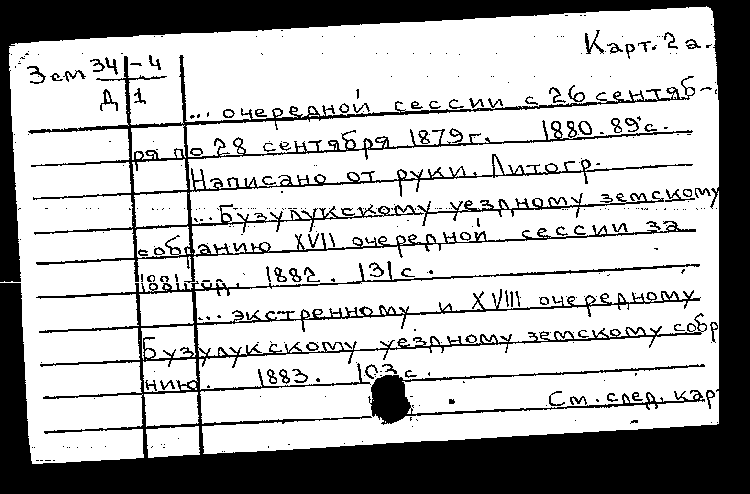 Карт. 2а.
Зем 34-4
Д 1
... очередной сессии с 26 сентяб-
ря по 28 сентября 1879 г. 1880. 89 с.
Написано от руки. Литогр.
... Бузулукскому уездному земскому
собранию XVII очередной сессии за
1881 год. 1882. 131 с.
... экстренному и XVIII очередному
Бузулукскому уездному земскому собр
нию. 1883. 103 с.
См. след. кар